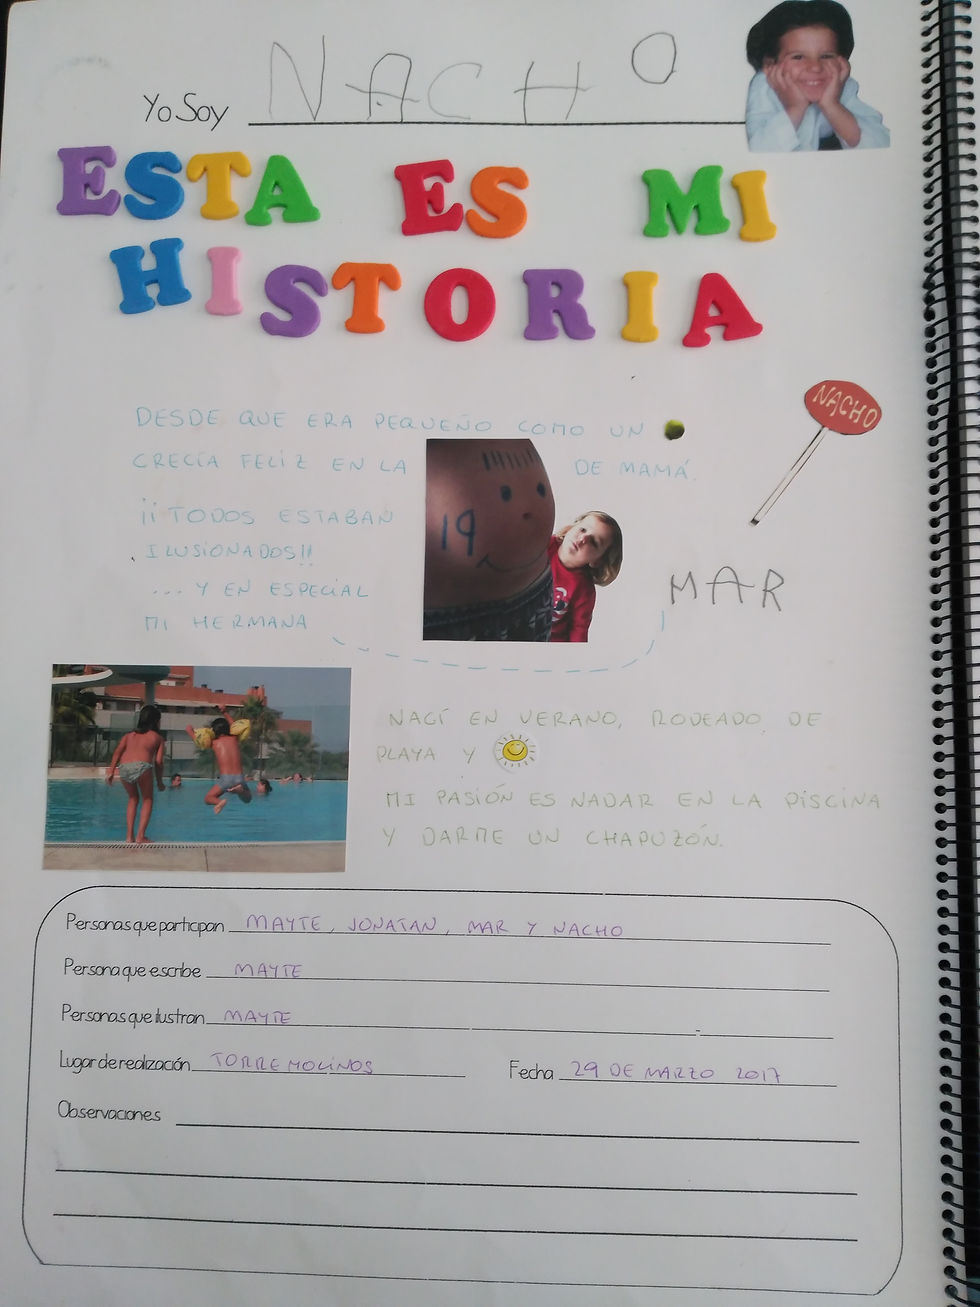 Yo Soy NACHO
ESTA ES MI
HISTORIA
NACHO
DESDE QUE ERA PEQUEÑO COMO UN
CRECÍA FELIZ EN LA DE MAMÁ.
¡¡TODOS ESTABAN
ILUSIONADOS!!
... Y EN ESPECIAL
MI HERMANA
19
MAR
NACÍ EN VERANO, RODEADO DE
PLAYA Y
MI PASIÓN ES NADAR EN LA PISCINA
Y DARME UN CHAPUZÓN.
Personas que participan MAYTE, JONATAN, MAR Y NACHO
Persona que escribe MAYTE
Personas que ilustran MAYTE
Lugar de realización TORREMOLINOS Fecha 29 DE MARZO 2017
Observaciones